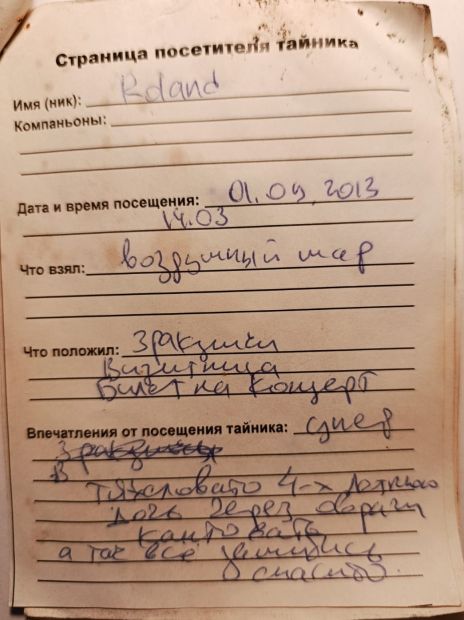 Страница посетителя тайника
Имя (ник): Roland
Компаньоны:
Дата и время посещения: 01.09.2013
14.03
Что взял: воздушный шар
Что положил: 3 ракушки
Визитница
Билет на концерт
Впечатления от посещения тайника: супер
3 ракушки
В
Тяжеловато 4-х летнюю
дочь через овраги
кантовать
а так все
спасибо